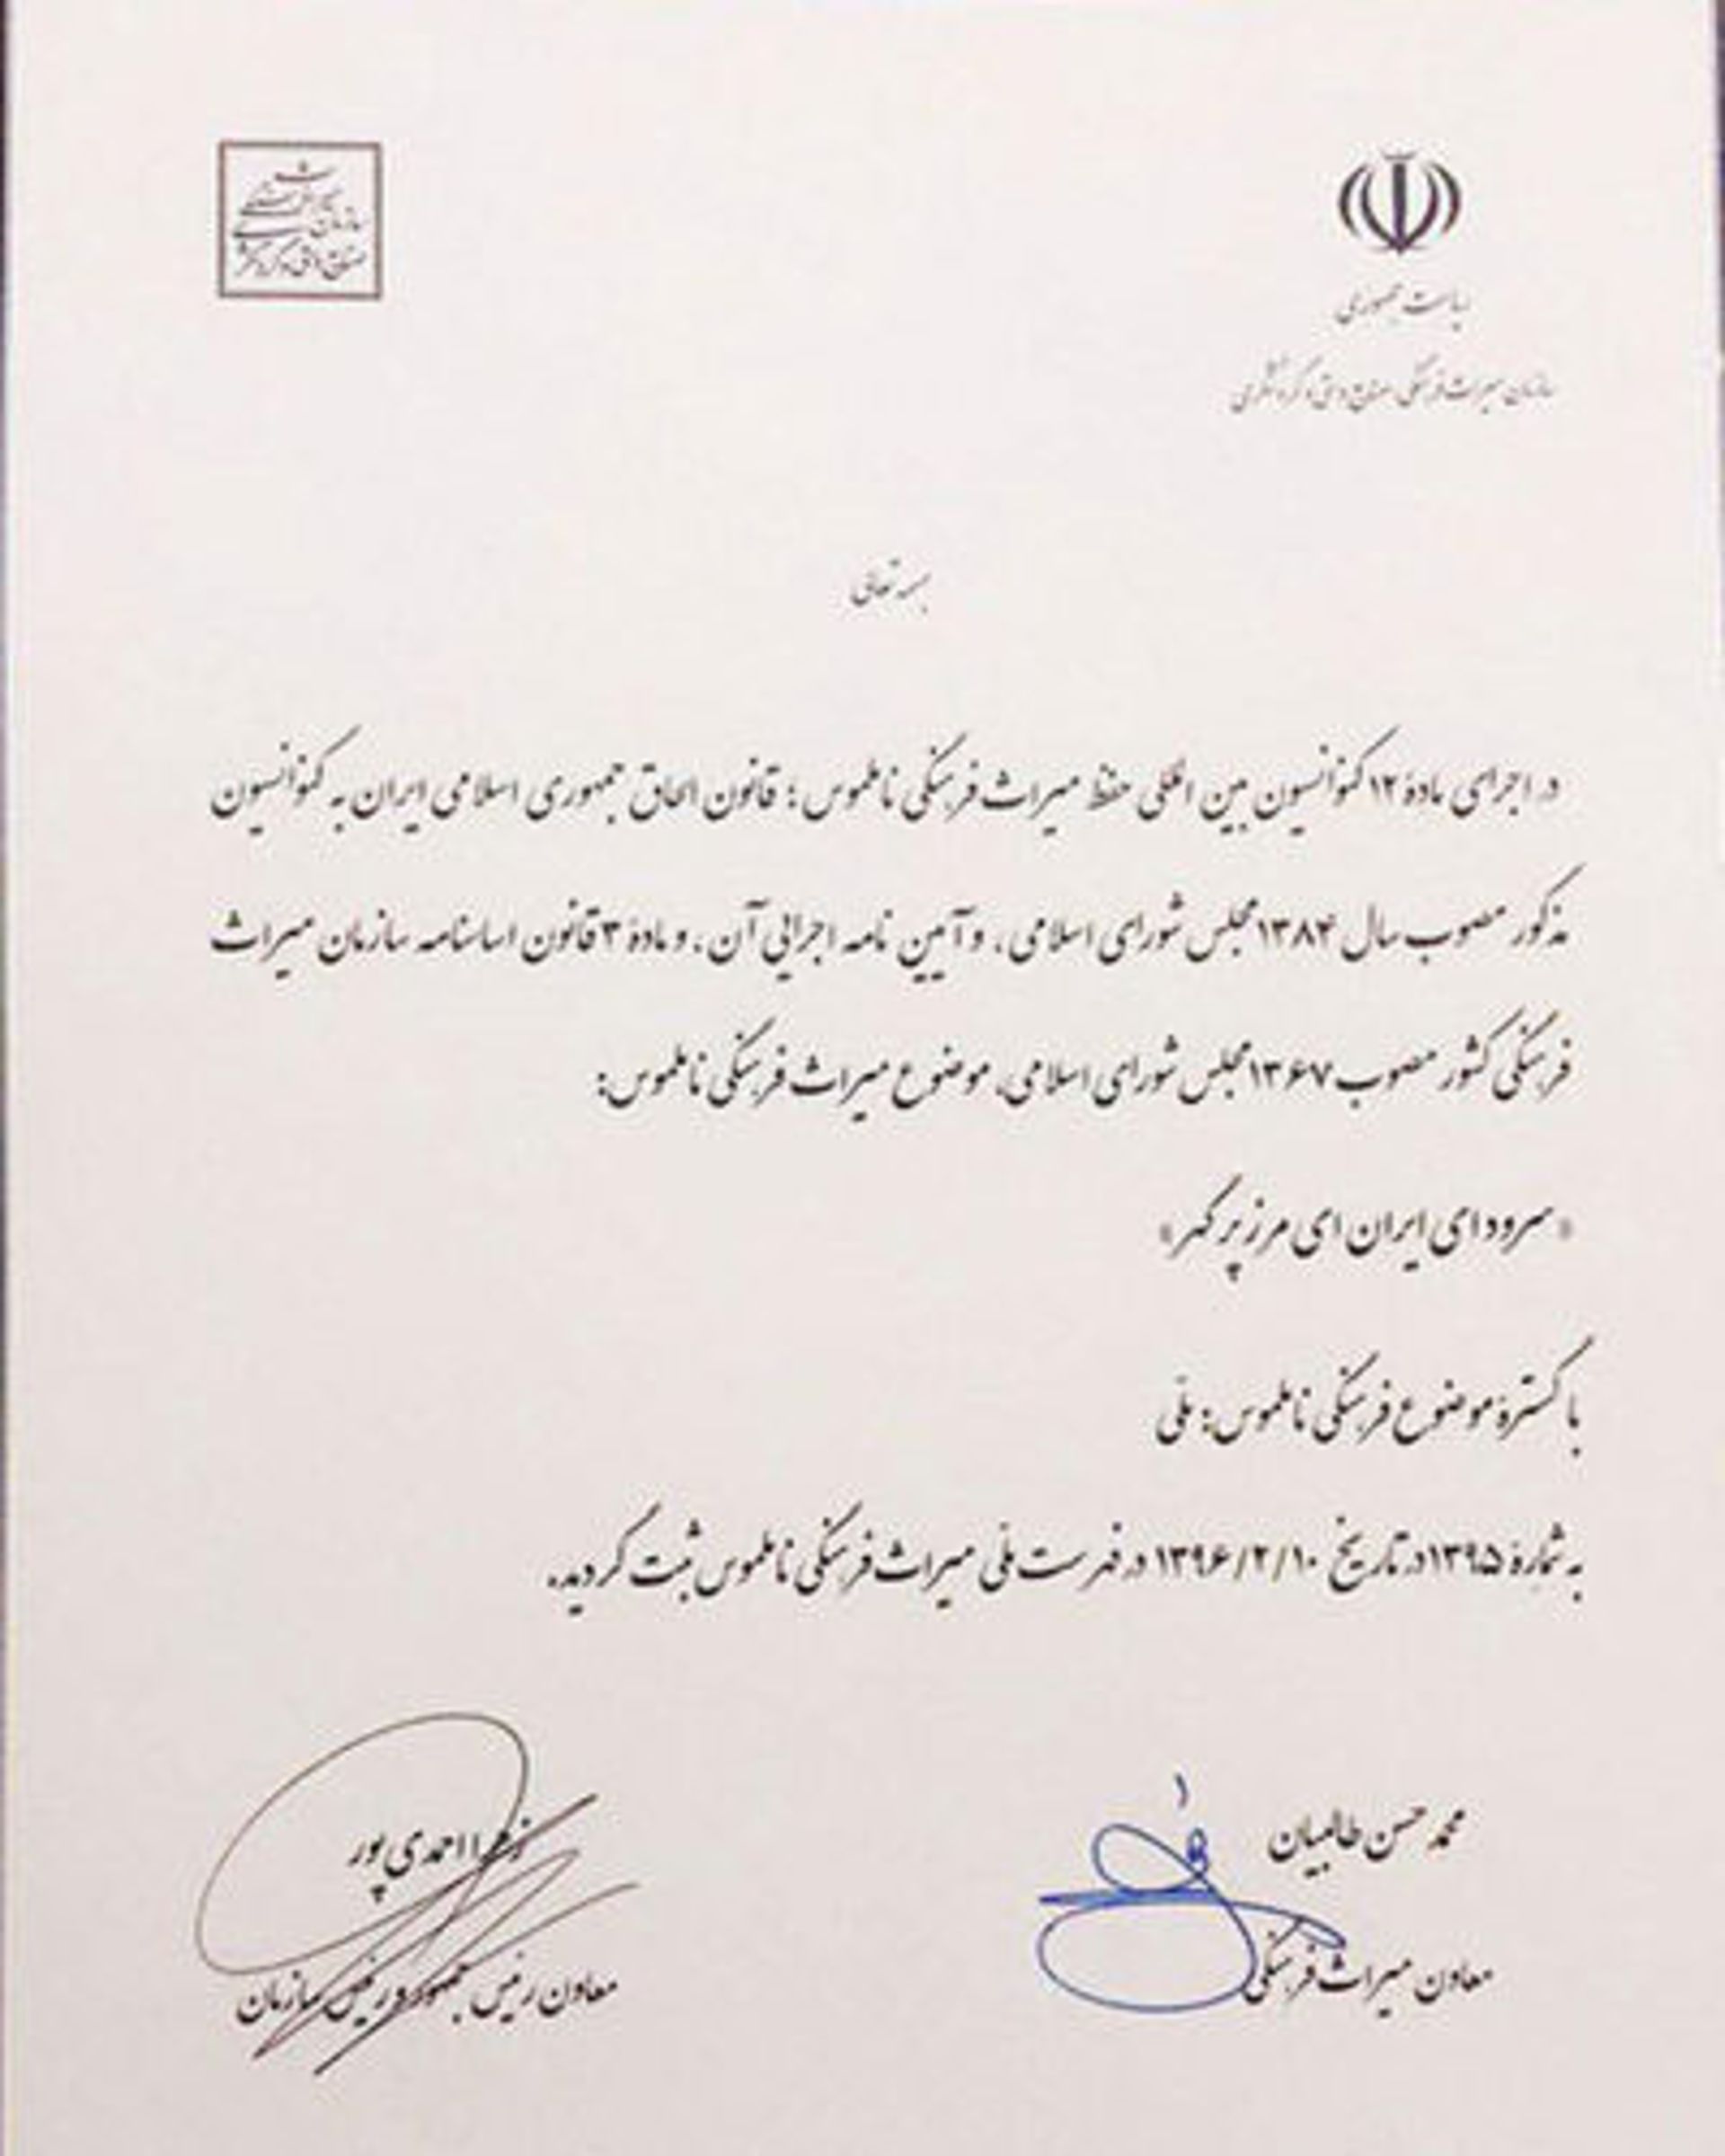 ریاست جمهوری
سازمان میراث فرهنگی، صنایع دستی و گردشگری
سازمان میراث فرهنگی
صنایع دستی و گردشگری
بسمه تعالی
در اجرای مادهٔ ۱۲ کنوانسیون بین المللی حفظ میراث فرهنگی ناملموس؛ قانون الحاق جمهوری اسلامی ایران به کنوانسیون
مذکور مصوب سال ۱۳۸۴ مجلس شورای اسلامی، و آیین نامه اجرائی آن، و مادهٔ ۳ قانون اساسنامه سازمان میراث
فرهنگی کشور مصوب ۱۳۶۷ مجلس شورای اسلامی، موضوع میراث فرهنگی ناملموس:
«سرود ای ایران ای مرز پر گهر»
با گسترهٔ موضوع فرهنگی ناملموس: ملّی
به شمارهٔ ۱۳۹۵ در تاریخ ۱۳۹۶/۲/۱۰ در فهرست ملّی میراث فرهنگی ناملموس ثبت گردید.
محمد حسن طالبیان
معاون میراث فرهنگی
زهرا احمدی پور
معاون رئیس جمهور و رئیس سازمان